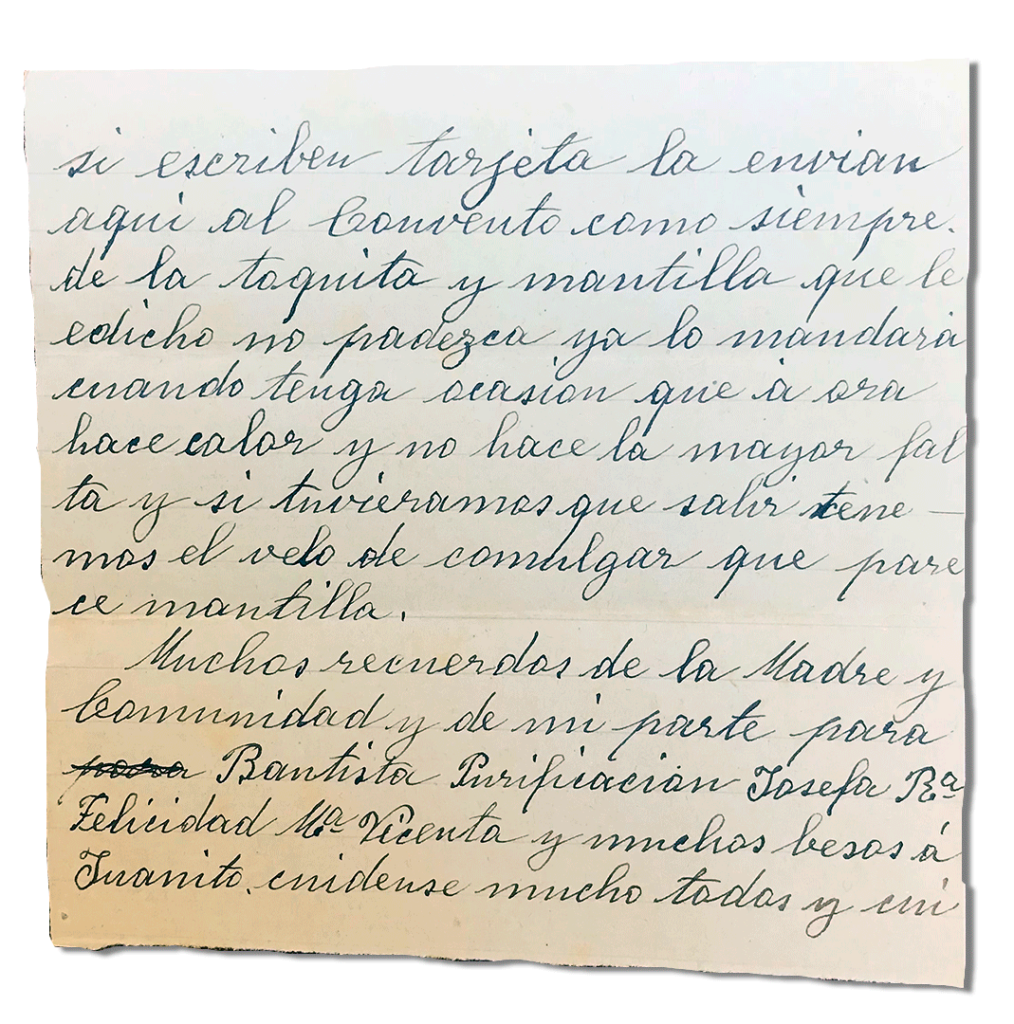 si escriben tarjeta la envian
aqui al Convento como siempre.
de la toquita y mantilla que le
edicho no padezca ya lo mandará
cuando tenga ocasion que á ora
hace calor y no hace la mayor fal
ta y si tuvieramos que salir tene-
mos el velo de comulgar que pare
ce mantilla.
Muchos recuerdos de la Madre y
Comunidad y de mi parte para
para Bautista Purificacion Josefa Rª
Felicidad Mª Vicenta y muchos besos á
Juanito. cuidense mucho todos y cui